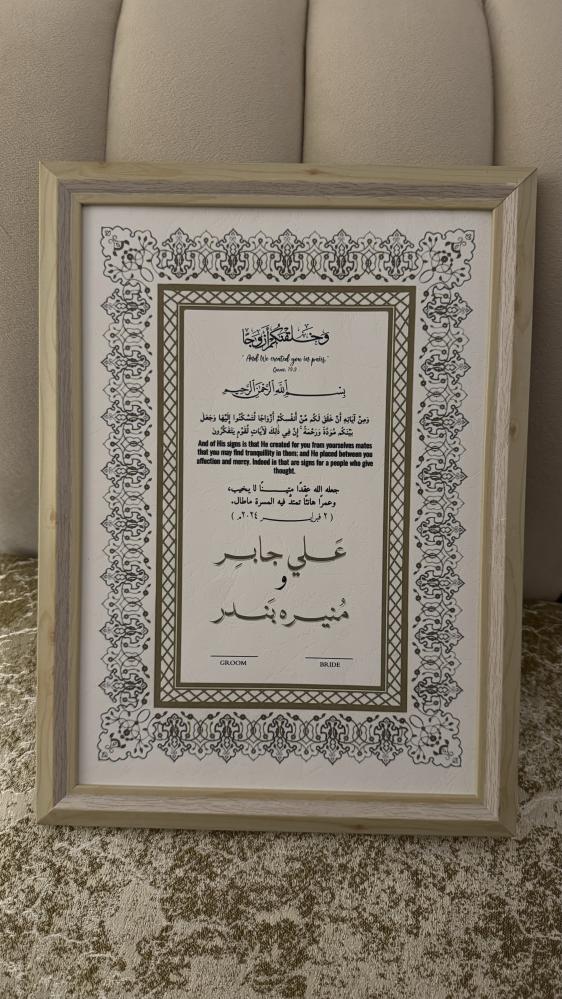 وَخَلَقْنَٰكُمْ أَزْوَٰجًا
"And We created you in pairs"
Quran 78:8
بِسْمِ اللَّهِ الرَّحْمَٰنِ الرَّحِيمِ
وَمِنْ آيَاتِهِ أَنْ خَلَقَ لَكُم مِّنْ أَنفُسِكُمْ أَزْوَاجًا لِّتَسْكُنُوا إِلَيْهَا وَجَعَلَ
بَيْنَكُم مَّوَدَّةً وَرَحْمَةً ۚ إِنَّ فِي ذَٰلِكَ لَآيَاتٍ لِّقَوْمٍ يَتَفَكَّرُونَ
And of His signs is that He created for you from yourselves mates
that you may find tranquillity in them; and He placed between you
affection and mercy. Indeed in that are signs for a people who give
thought.
جعله الله عقدًا متينًا لا يخيب،
وعمرًا هانئًا تمتدُّ فيه المسرة ماطال.
( ٢ فبراير ٢٠٢٤م )
عَلي جابِر
و
مُنيره بَندر
GROOM
BRIDE